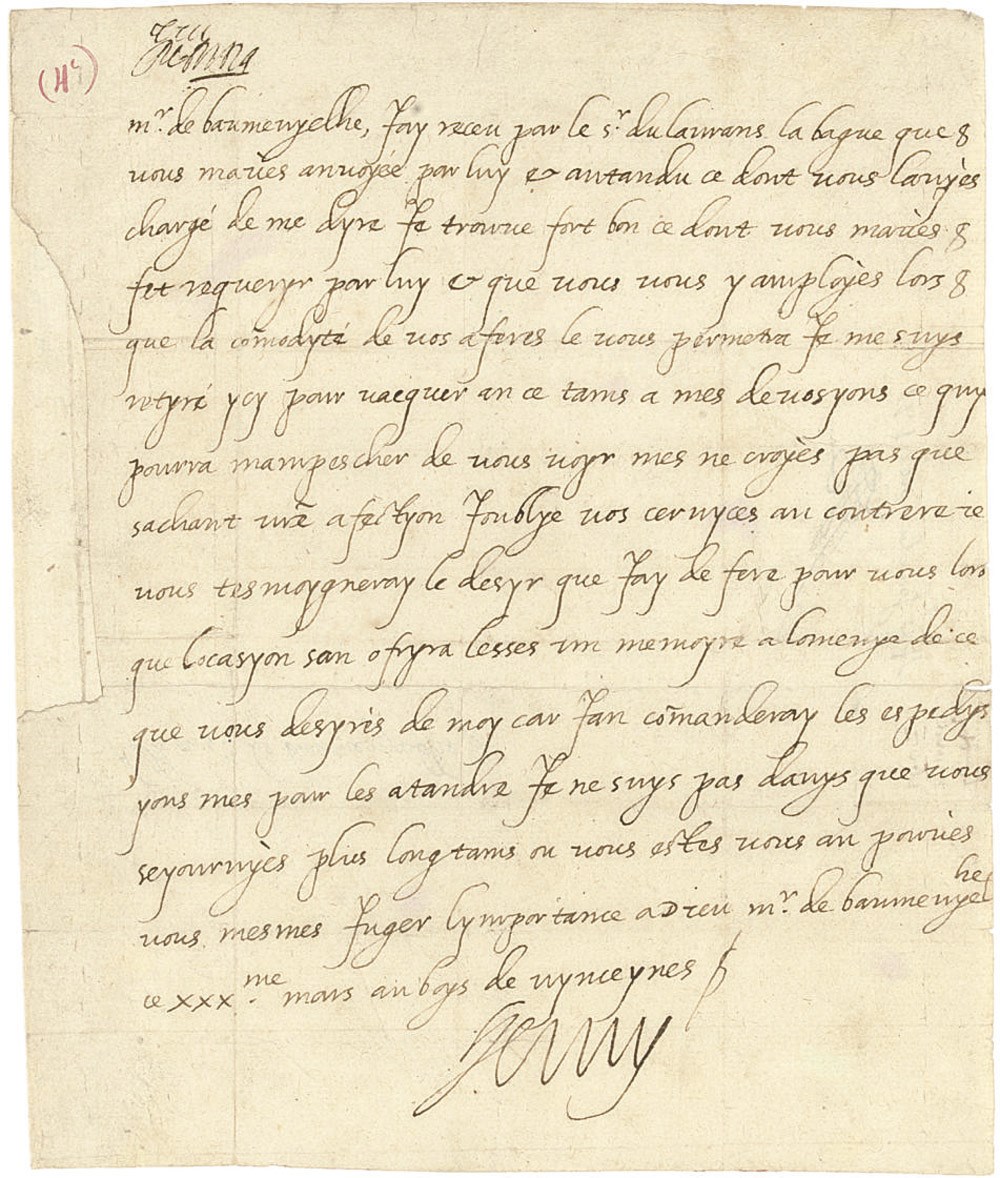 (4c)
mr. de baumeuyelhe, Jay receu par le sr. du laurans la bague que
vous mauès anuoyée par luy & antandu ce dont vous lauyès
chargé de me dyre Je trouue fort bon ce dont vous mauès
fet requeryr par luy & que vous vous y amployès lors
que la comōdyté de vos aferes le vous permetra Je me suys
retyré ycy pour vacquer an ce tams a mes devosyons ce quy
pourra mampescher de vous voyr mes ne croyès pas que
sachant vrē afectyon Joublye vos ceruyces au contrere ie
vous tesmoygneray le desyr que Jay de fere pour vous lors
que locasyon san ofryra lesses un memoyre a lomenye de ce
que vous desyrés de moy car Jan comānderay les espedys
yons mes pour les atandre Je ne suys pas dauys que vous
seyournyès plus longtams ou vous estes vous an pouuès
vous mesmes Juger lymportance aDieu mr. de baumeuyelhe
ce xxx me mars au boys de vynceynes
Henry